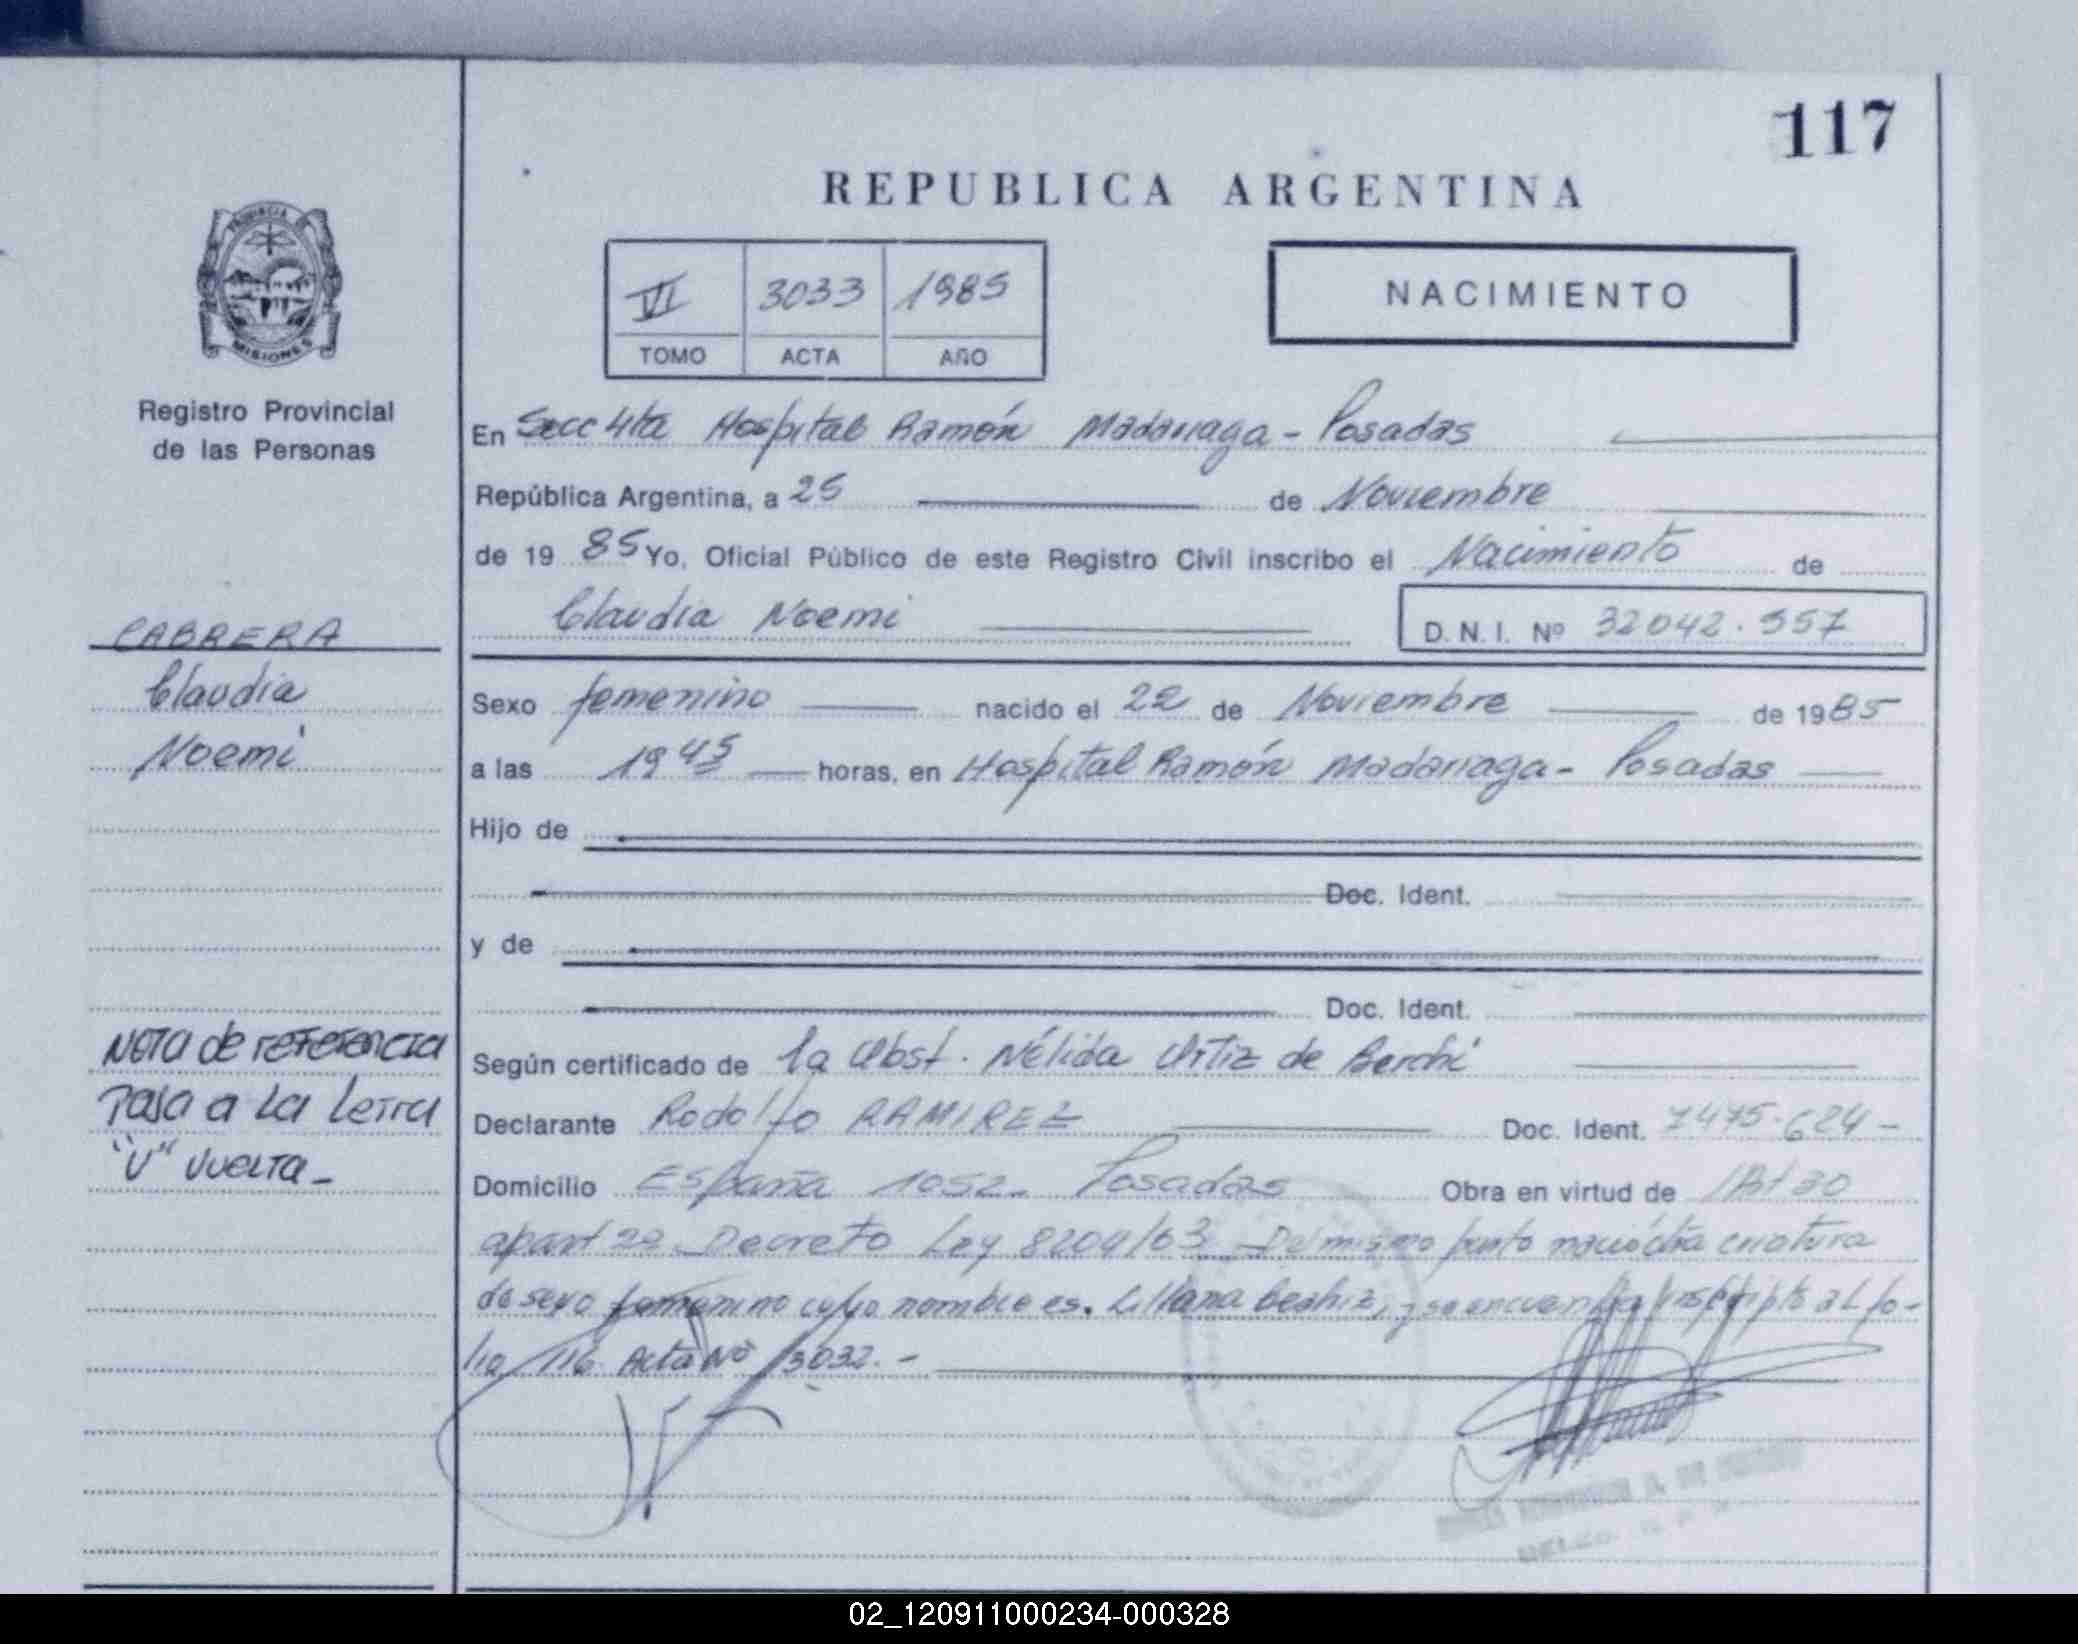 117
REPUBLICA ARGENTINA
VI 3033 1985
TOMO ACTA AÑO
NACIMIENTO
PROVINCIA DE
MISIONES
Registro Provincial
de las Personas
CABRERA
Claudia
Noemi
Nota de referencia
Pasa a La Letra
"V" Vuelta_
En Secc 4ta Hospital Ramón Madariaga - Posadas
República Argentina, a 25 de Noviembre
de 19 85 Yo, Oficial Público de este Registro Civil inscribo el Nacimiento de
Claudia Noemi D.N.I. Nº 32042.557
Sexo femenino nacido el 22 de Noviembre de 1985
a las 19 45 horas, en Hospital Ramón Madariaga - Posadas
Hijo de
Doc. Ident.
y de
Doc. Ident.
Según certificado de la Obst. Nélida Ortiz de Berchi
Declarante Rodolfo RAMIREZ Doc. Ident. 7475.624 -
Domicilio España 1052. Posadas Obra en virtud de Art 30
apart 22 Decreto Ley 8204/63 Del mismo parto nació otra criatura
de sexo femenino cuyo nombre es. Liliana Beatriz, y se encuentra inscripto al fo-
lio 116 Acta Nº 3032. -
02_120911000234-000328